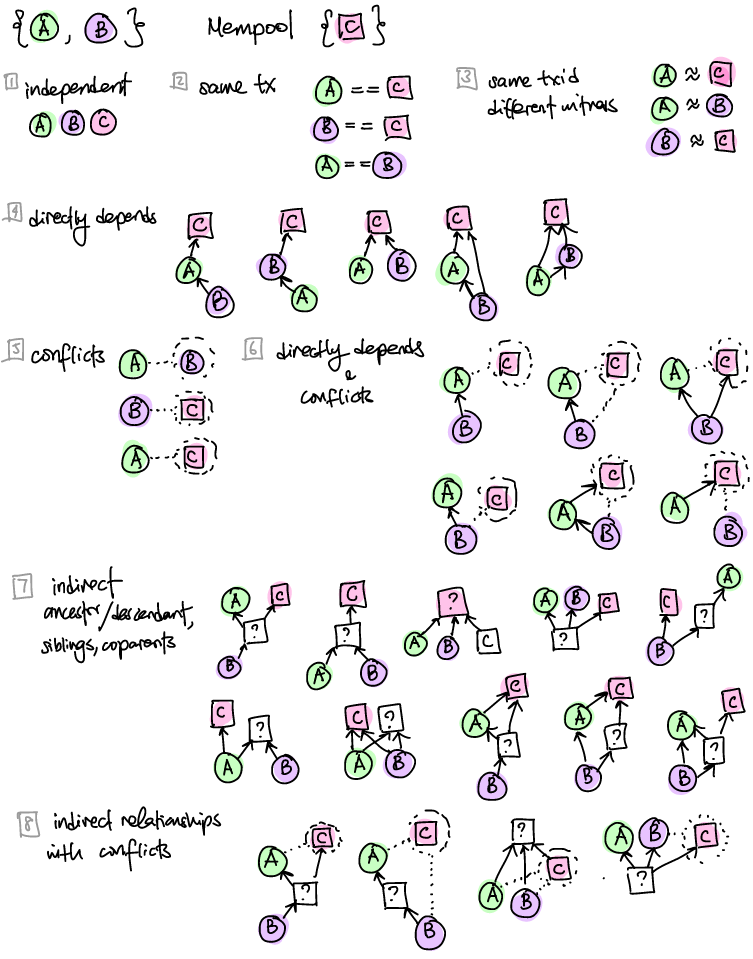 {A, B} Mempool {C}
1 independent
A B C
2 same tx
A == C
B == C
A == B
3 same txid
different witness
A ≈ C
A ≈ B
B ≈ C
4 directly depends
C C C C C
A B A B A B A
B A B
5 conflicts
A B
B C
A C
6 directly depends
& conflicts
C C C
A A A
B B B
A C C C
A A
B B B
7 indirect
ancestor/descendant,
siblings, coparents
A C C ? A B C C A
? ? A B C ? ?
B A B B
C ? C ? C A C A C
A B A B ? ? ?
B B B
8 indirect relationships
with conflicts
C C ? A B C
A A C
? ? A B ?
B B